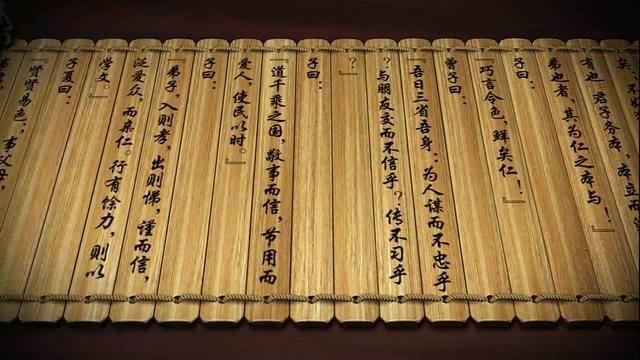 矣。不好
有也。君子务本，本立而
弟也者，其为仁之本与！』
子曰：
『巧言令色，鲜矣仁！』
曾子曰：
『吾日三省吾身：为人谋而不忠乎
？与朋友交而不信乎？传不习乎
？』
子曰：
『道千乘之国，敬事而信，节用而
爱人，使民以时。』
子曰：
『弟子，入则孝，出则悌，谨而信，
泛爱众，而亲仁。行有馀力，则以
学文。』
子夏曰：
『贤贤易色；事父母，